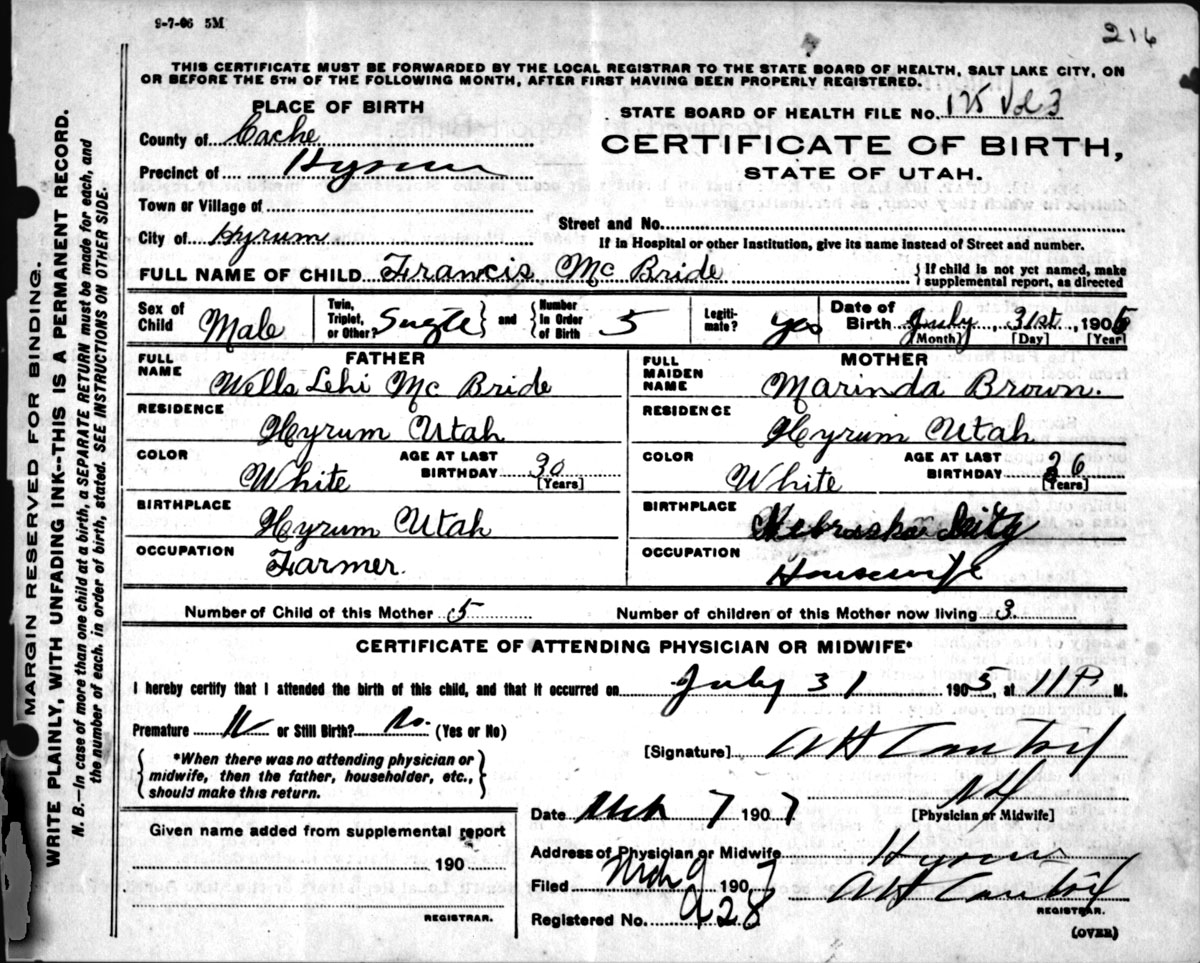 9-7-06 5M
216
THIS CERTIFICATE MUST BE FORWARDED BY THE LOCAL REGISTRAR TO THE STATE BOARD OF HEALTH, SALT LAKE CITY, ON
OR BEFORE THE 5TH OF THE FOLLOWING MONTH, AFTER FIRST HAVING BEEN PROPERLY REGISTERED.
PLACE OF BIRTH
STATE BOARD OF HEALTH FILE NO. 125 Vol 3
County of Cache
CERTIFICATE OF BIRTH,
Precinct of Hyrum
STATE OF UTAH.
Town or Village of
Street and No.
City of Hyrum
If in Hospital or other Institution, give its name instead of Street and number.
FULL NAME OF CHILD Francis Mc Bride
{If child is not yet named, make
supplemental report, as directed
Sex of Child Male
Twin, Triplet, or Other? Single } and { Number in Order of Birth 5
Legitimate? yes
Date of Birth July, 31st, 1905
[Month] [Day] [Year]
FATHER
MOTHER
FULL NAME Wells Lehi Mc Bride
FULL MAIDEN NAME Marinda Brown.
RESIDENCE Hyrum Utah
RESIDENCE Hyrum Utah
COLOR White AGE AT LAST BIRTHDAY 30 [Years]
COLOR White AGE AT LAST BIRTHDAY 26 [Years]
BIRTHPLACE Hyrum Utah
BIRTHPLACE Nebraska City
OCCUPATION Farmer.
OCCUPATION Housewife
Number of Child of this Mother 5
Number of children of this Mother now living 3.
CERTIFICATE OF ATTENDING PHYSICIAN OR MIDWIFE*
I hereby certify that I attended the birth of this child, and that it occurred on July 31 1905, at 11 P M.
Premature N or Still Birth? No. (Yes or No)
[Signature] A H
{*When there was no attending physician or
midwife, then the father, householder, etc.,
should make this return.}
[Physician or Midwife]
Date Mch 7 1907
Given name added from supplemental report
190
REGISTRAR.
Address of Physician or Midwife Hyrum
Filed Mch 9 1907 A H
REGISTRAR.
Registered No. 928
(OVER)
MARGIN RESERVED FOR BINDING.
WRITE PLAINLY, WITH UNFADING INK--THIS IS A PERMANENT RECORD.
N. B.--In case of more than one child at a birth, a SEPARATE RETURN must be made for each, and
the number of each, in order of birth, stated. SEE INSTRUCTIONS ON OTHER SIDE.